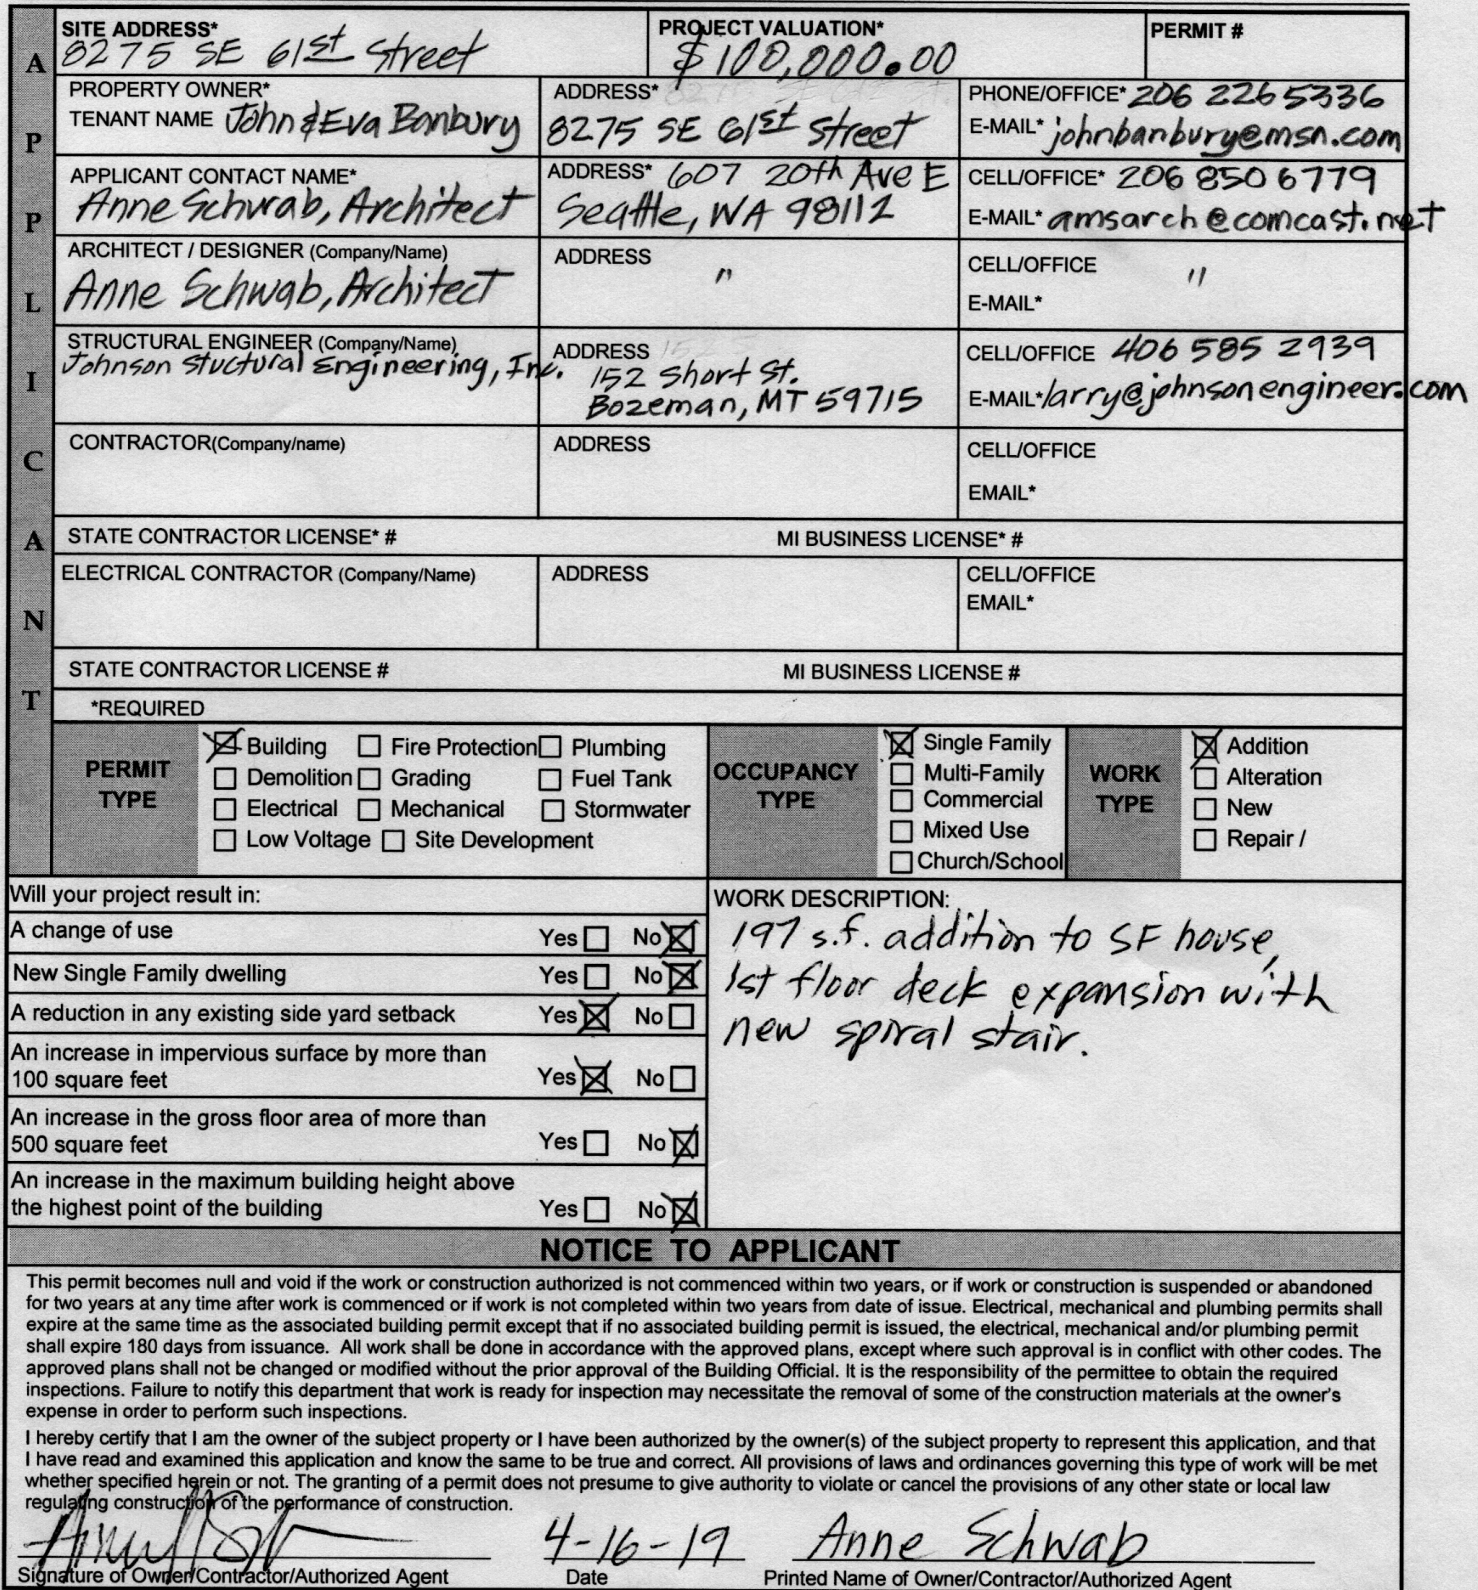 APPLICANT
SITE ADDRESS*
8275 SE 61st Street
PROJECT VALUATION*
$100,000.00
PERMIT #
PROPERTY OWNER*
TENANT NAME John & Eva Banbury
ADDRESS*
8275 SE 61st Street
PHONE/OFFICE* 206 226 5336
E-MAIL* johnbanbury@msn.com
APPLICANT CONTACT NAME*
Anne Schwab, Architect
ADDRESS* 607 20th Ave E
Seattle, WA 98112
CELL/OFFICE* 206 850 6779
E-MAIL* amsarch@comcast.net
ARCHITECT / DESIGNER (Company/Name)
Anne Schwab, Architect
ADDRESS
"
CELL/OFFICE "
E-MAIL*
STRUCTURAL ENGINEER (Company/Name)
Johnson Stuctural Engineering, Inc.
ADDRESS
152 Short St.
Bozeman, MT 59715
CELL/OFFICE 406 585 2939
E-MAIL* larry@johnsonengineer.com
CONTRACTOR(Company/name)
ADDRESS
CELL/OFFICE
EMAIL*
STATE CONTRACTOR LICENSE* #
MI BUSINESS LICENSE* #
ELECTRICAL CONTRACTOR (Company/Name)
ADDRESS
CELL/OFFICE
EMAIL*
STATE CONTRACTOR LICENSE #
MI BUSINESS LICENSE #
*REQUIRED
PERMIT
TYPE
Building Fire Protection Plumbing
Demolition Grading Fuel Tank
Electrical Mechanical Stormwater
Low Voltage Site Development
OCCUPANCY
TYPE
Single Family
Multi-Family
Commercial
Mixed Use
Church/School
WORK
TYPE
Addition
Alteration
New
Repair /
Will your project result in:
A change of use Yes No
New Single Family dwelling Yes No
A reduction in any existing side yard setback Yes No
An increase in impervious surface by more than
100 square feet Yes No
An increase in the gross floor area of more than
500 square feet Yes No
An increase in the maximum building height above
the highest point of the building Yes No
WORK DESCRIPTION:
197 s.f. addition to SF house,
1st floor deck expansion with
new spiral stair.
NOTICE TO APPLICANT
This permit becomes null and void if the work or construction authorized is not commenced within two years, or if work or construction is suspended or abandoned
for two years at any time after work is commenced or if work is not completed within two years from date of issue. Electrical, mechanical and plumbing permits shall
expire at the same time as the associated building permit except that if no associated building permit is issued, the electrical, mechanical and/or plumbing permit
shall expire 180 days from issuance. All work shall be done in accordance with the approved plans, except where such approval is in conflict with other codes. The
approved plans shall not be changed or modified without the prior approval of the Building Official. It is the responsibility of the permittee to obtain the required
inspections. Failure to notify this department that work is ready for inspection may necessitate the removal of some of the construction materials at the owner's
expense in order to perform such inspections.
I hereby certify that I am the owner of the subject property or I have been authorized by the owner(s) of the subject property to represent this application, and that
I have read and examined this application and know the same to be true and correct. All provisions of laws and ordinances governing this type of work will be met
whether specified herein or not. The granting of a permit does not presume to give authority to violate or cancel the provisions of any other state or local law
regulating construction of the performance of construction.
4-16-19 Anne Schwab
Signature of Owner/Contractor/Authorized Agent Date Printed Name of Owner/Contractor/Authorized Agent